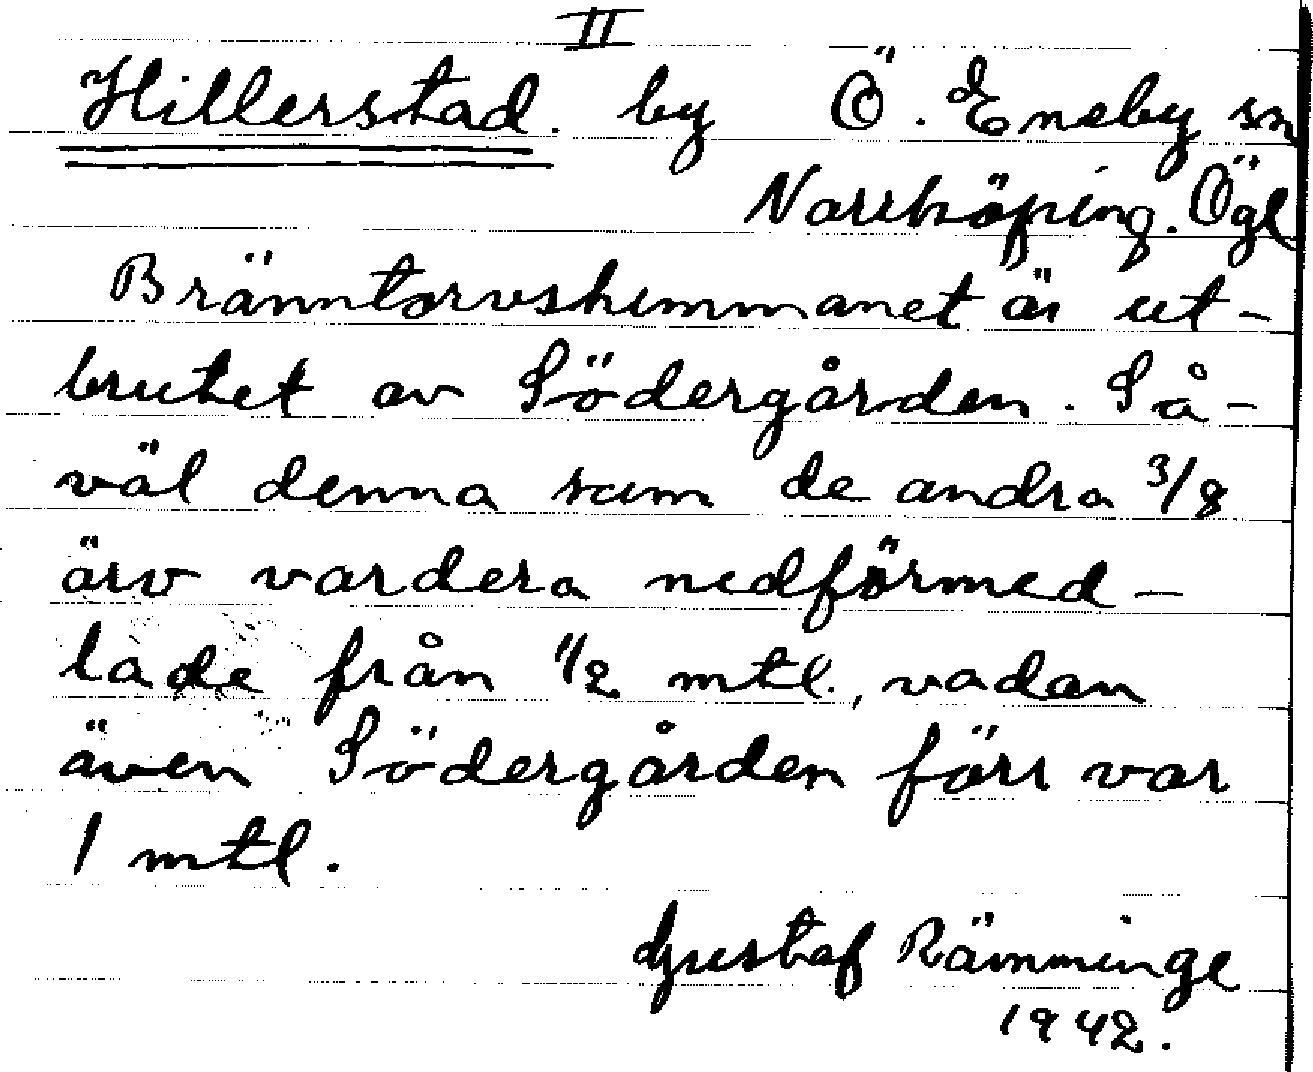 II
Hillerstad. by Ö. Eneby sn
Norrköping. Ögl
Bränntorvshemmanet är ut-
brutet av Södergården. Så-
väl denna som de andra 3/8
ärv vardera nedförmed-
lade från 1/2 mtl., vadan
även Södergården förr var
1 mtl.
Gustaf Rämminge
1942.